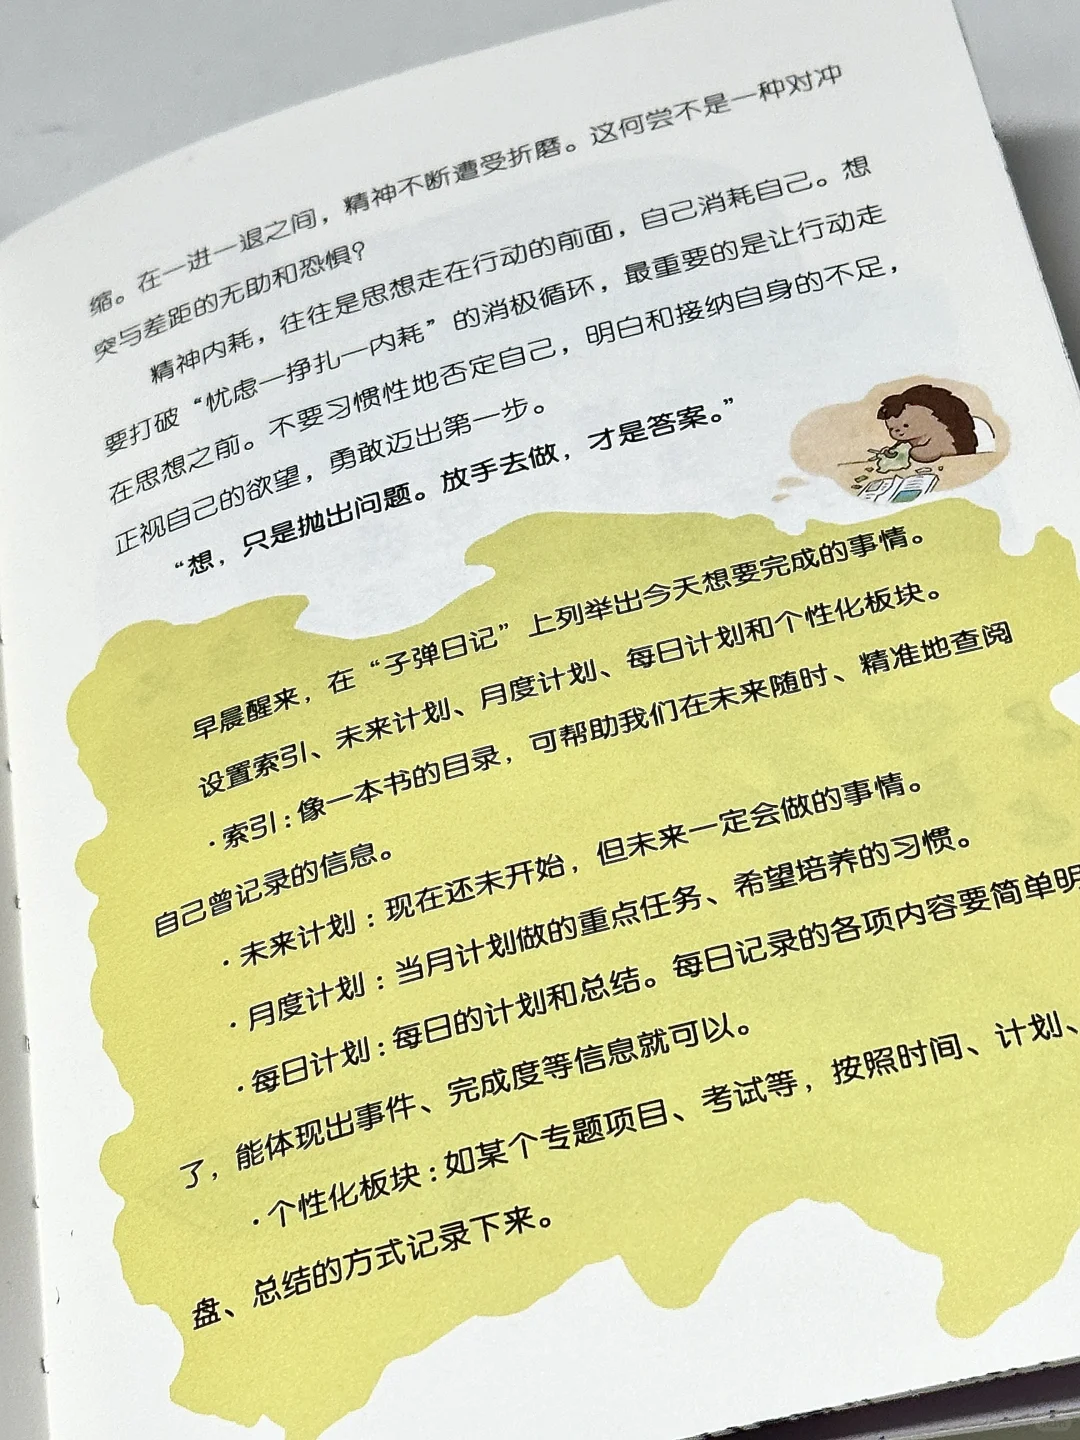 缩。在一进一退之间，精神不断遭受折磨。这何尝不是一种对冲
突与差距的无助和恐惧？
精神内耗，往往是思想走在行动的前面，自己消耗自己。想
要打破“忧虑—挣扎—内耗”的消极循环，最重要的是让行动走
在思想之前。不要习惯性地否定自己，明白和接纳自身的不足，
正视自己的欲望，勇敢迈出第一步。
“想，只是抛出问题。放手去做，才是答案。”
早晨醒来，在“子弹日记”上列举出今天想要完成的事情。
设置索引、未来计划、月度计划、每日计划和个性化板块。
·索引：像一本书的目录，可帮助我们在未来随时、精准地查阅
自己曾记录的信息。
·未来计划：现在还未开始，但未来一定会做的事情。
·月度计划：当月计划做的重点任务、希望培养的习惯。
·每日计划：每日的计划和总结。每日记录的各项内容要简单明
了，能体现出事件、完成度等信息就可以。
·个性化板块：如某个专题项目、考试等，按照时间、计划、
盘、总结的方式记录下来。